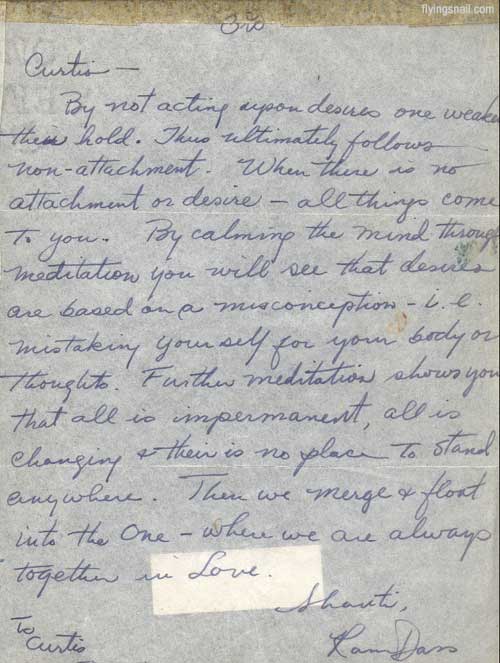 flyingsnail.com
Curtis —
By not acting upon desires one weaken
their hold. Thus ultimately follows
non-attachment. When there is no
attachment or desire — all things come
to you. By calming the mind through
meditation you will see that desires
are based on a misconception - i.e.
mistaking yourself for your body or
thoughts. Further meditation shows you
that all is impermanent, all is
changing & their is no place to stand
anywhere. Then we merge & float
into the One - where we are always
together in Love.
Shanti,
Ram Dass
To
Curtis